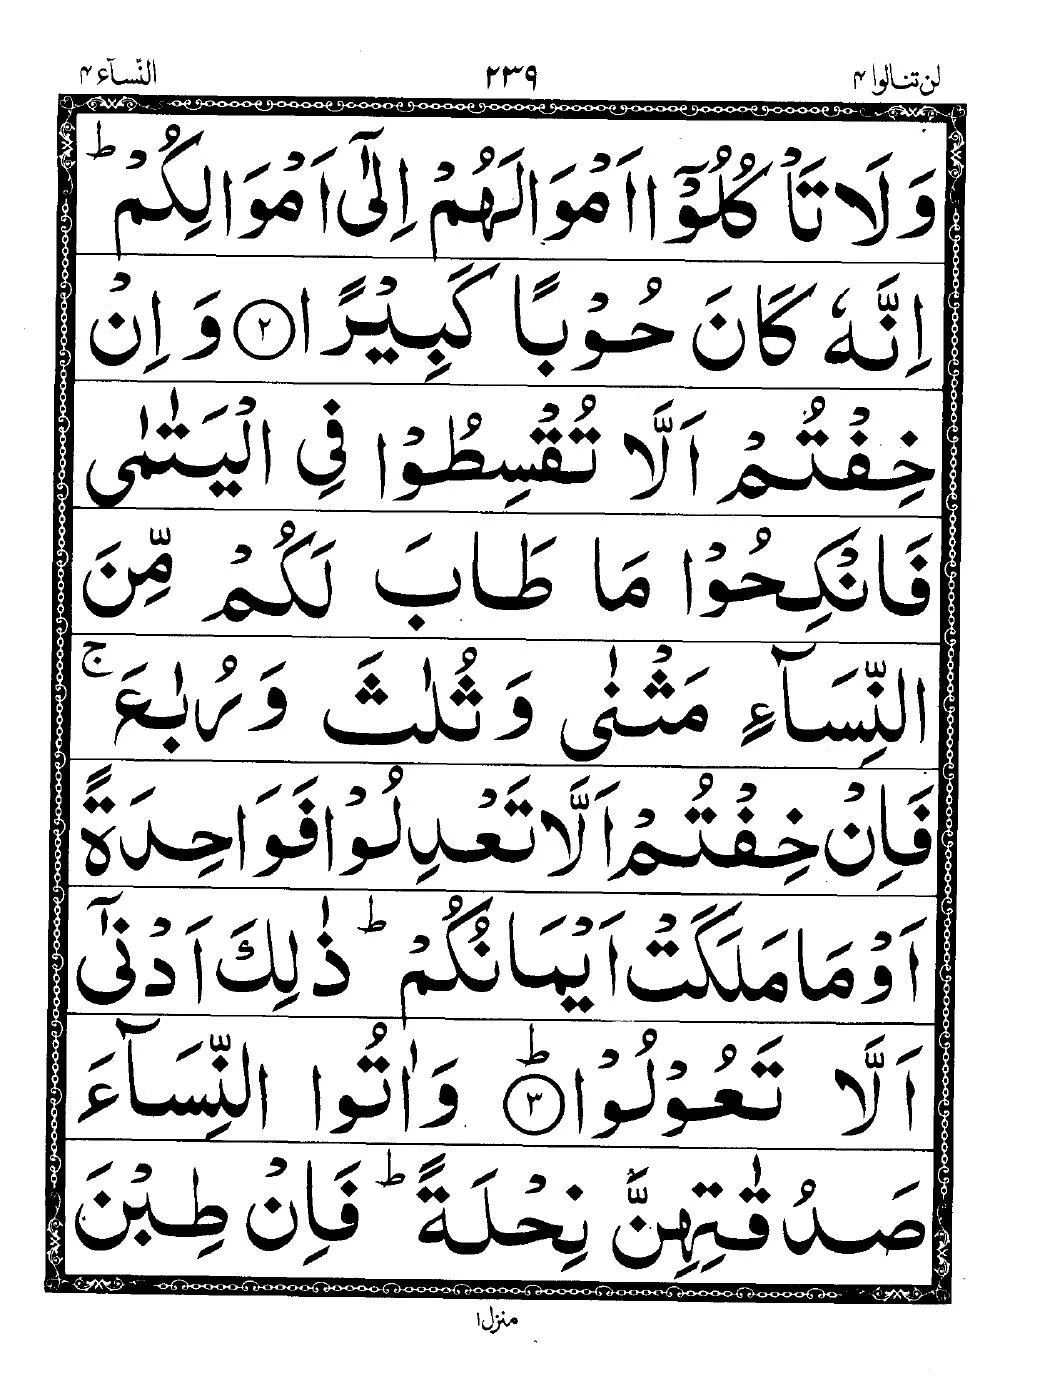 لن تنالوا ۴ ۲۳۹ النّسآء ۴
وَلَا تَاْكُلُوْۤا اَمْوَالَهُمْ اِلٰۤى اَمْوَالِكُمْ ؕ
اِنَّهٗ كَانَ حُوْبًا كَبِيْرًا ۝۲ وَ اِنْ
خِفْتُمْ اَلَّا تُقْسِطُوْا فِي الْيَتٰمٰى
فَانْكِحُوْا مَا طَابَ لَكُمْ مِّنَ
النِّسَآءِ مَثْنٰى وَ ثُلٰثَ وَ رُبٰعَ ۚ
فَاِنْ خِفْتُمْ اَلَّا تَعْدِلُوْا فَوَاحِدَةً
اَوْ مَا مَلَكَتْ اَيْمَانُكُمْ ؕ ذٰلِكَ اَدْنٰۤى
اَلَّا تَعُوْلُوْا ؕ۝۳ وَاٰتُوا النِّسَآءَ
صَدُقٰتِهِنَّ نِحْلَةً ؕ فَاِنْ طِبْنَ
منزل ۱